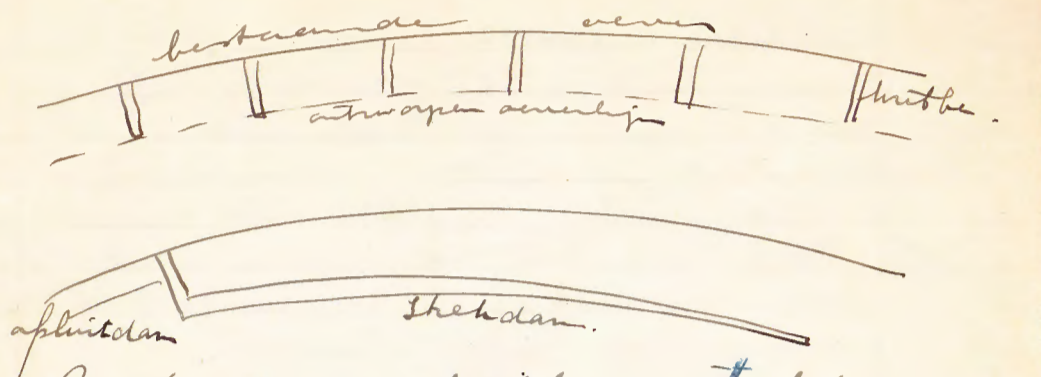 bestaande oever
ontworpen oeverlijn
kribbe.
afsluitdam
Strekdam.